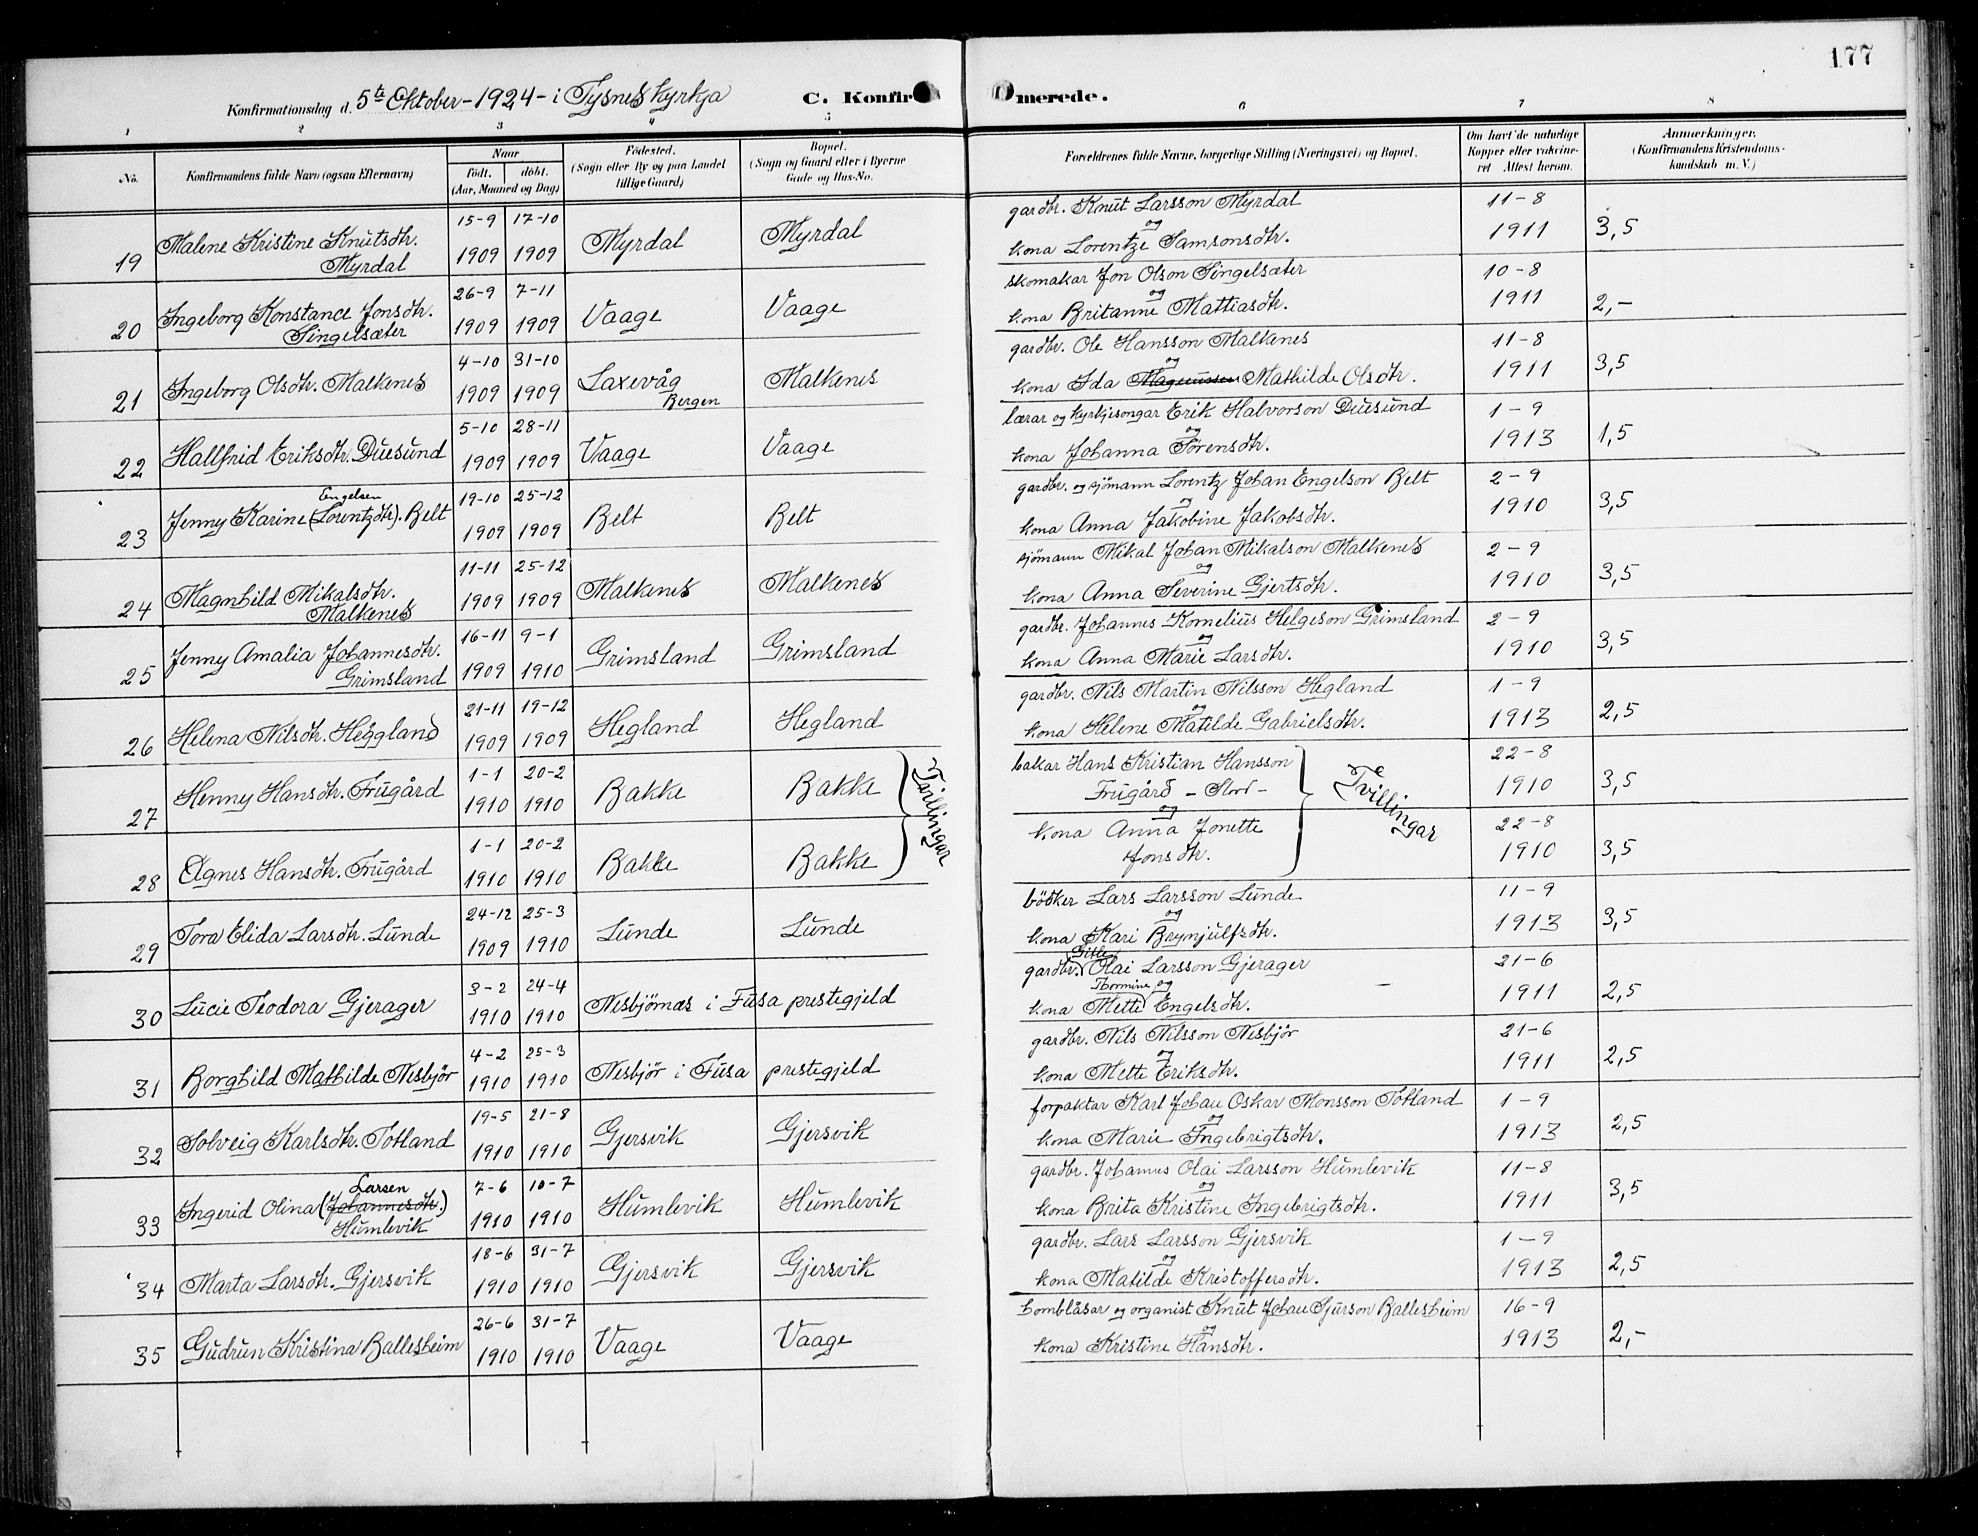 177
Konfirmationsdag d. 5te Oktober - 1924 - i Tysnes kyrkja
C. Konfirmerede.
1 2 3 4 5 6 7 8
No. Konfirmandens fulde Navn (ogsaa Efternavn) Naar født. døbt. (Aar, Maaned og Dag) Fødested. (Sogn eller By og paa Landet tillige Gaard) Bopæl. (Sogn og Gaard eller i Byerne Gade og Hus-No. Forældrenes fulde Navne, borgerlige Stilling (Næringsvei) og Bopæl. Om havt de naturlige Kopper eller vakcineret Attest herom. Anmærkninger. (Konfirmandens Kristendomskundskab m. V.)
15-9 17-10 gardbr. Knut Larsson Myrdal 11-8
19 Malene Kristine Knutsdtr. Myrdal 1909 1909 Myrdal Myrdal og kona Lorentze Samsonsdtr. 1911 3,5
26-9 7-11 skomakar Jon Olson Singelsæter 10-8
20 Ingeborg Konstance Jonsdtr. Singelsæter 1909 1909 Vaage Vaage og kona Britanne Mattiasdtr. 1911 2,-
4-10 31-10 gardbr. Ole Hansson Malkenes 11-8
21 Ingeborg Olsdtr. Malkenes 1909 1909 Laxevåg Bergen Malkenes og kona Ida Magnussen Mathilde Olsdtr. 1911 3,5
5-10 28-11 lærar og kyrkjesongar Erik Halvorson Duesund 1-9
22 Hallfrid Eriksdtr. Duesund 1909 1909 Vaage Vaage og kona Johanna Sørensdtr. 1913 1,5
19-10 25-12 gardbr. og sjömann Lorentz Johan Engelson Belt 2-9
23 Jenny Karine Engelsen (Lorentzdtr). Belt 1909 1909 Belt Belt og kona Anna Jakobine Jakobsdtr. 1910 3,5
11-11 25-12 sjömann Mikal Johan Mikalson Malkenes 2-9
24 Magnhild Mikalsdtr. Malkenes 1909 1909 Malkenes Malkenes og kona Anna Severine Gjertsdtr. 1910 3,5
16-11 9-1 gardbr. Johannes Kornelius Helgeson Grimsland 2-9
25 Jenny Amalia Johannesdtr. Grimsland 1909 1910 Grimsland Grimsland og kona Anna Marie Larsdtr. 1910 3,5
21-11 19-12 gardbr. Nils Martin Nilsson Hegland 1-9
26 Helena Nilsdtr. Heggland 1909 1909 Hegland Hegland og kona Helene Matilde Gabrielsdtr. 1913 2,5
1-1 20-2 bakar Hans Kristian Hansson 22-8
27 Henny Hansdtr. Frugård 1910 1910 Bakke Bakke Tvillingar Frugård - Stord - Tvillingar 1910 3,5
1-1 20-2 og kona Anna Jonette 22-8
28 Agnes Hansdtr. Frugård 1910 1910 Bakke Bakke Jonsdtr. 1910 3,5
24-12 25-3 bödker Lars Larsson Lunde 11-9
29 Tora Elida Larsdtr. Lunde 1909 1910 Lunde Lunde og kona Kari Brynjulfsdtr. 1913 3,5
3-2 24-4 gardbr. (Gitle) Olai Larsson Gjerager 21-6
30 Lucie Teodora Gjerager 1910 1910 Nesbjörnæs i Fusa prestegjeld og kona Mette Thormine Engelsdtr. 1911 2,5
4-2 25-3 gardbr. Nils Nilsson Nesbjör 21-6
31 Borghild Mathilde Nesbjör 1910 1910 Nesbjör i Fusa prestegjeld og kona Mette Eriksdtr. 1911 2,5
19-5 21-8 forpaktar Karl Johan Oskar Monsson Totland 1-9
32 Solveig Karlsdtr. Totland 1910 1910 Gjersvik Gjersvik og kona Marie Ingebrigtsdtr. 1913 2,5
7-6 10-7 gardbr. Johannes Olai Larsson Humlevik 11-8
33 Ingerid Olina Larsen (Johannesdtr.) Humlevik 1910 1910 Humlevik Humlevik og kona Brita Kristine Ingebrigtsdtr. 1911 3,5
18-6 31-7 gardbr. Lars Larsson Gjersvik 1-9
34 Marta Larsdtr. Gjersvik 1910 1910 Gjersvik Gjersvik og kona Matilde Kristoffersdtr. 1913 2,5
26-6 31-7 hornblåsar og organist Knut Johan Sjurson Ballesheim 16-9
35 Gudrun Kristina Ballesheim 1910 1910 Vaage Vaage og kona Kristine Hansdtr. 1913 2,-